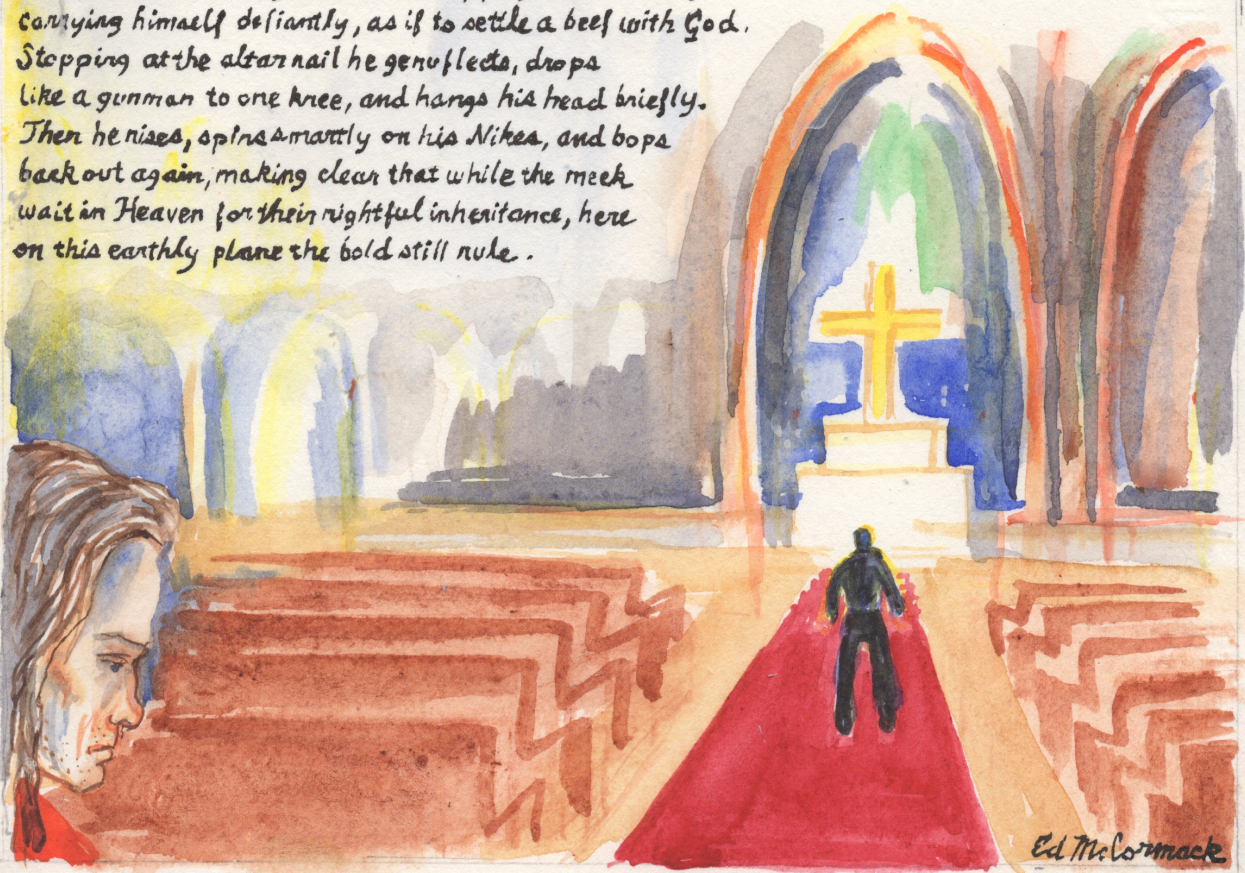 carrying himself defiantly, as if to settle a beef with God.
Stopping at the altar rail he genuflects, drops
like a gunman to one knee, and hangs his head briefly.
Then he rises, spins smartly on his Nikes, and bops
back out again, making clear that while the meek
wait in Heaven for their rightful inheritance, here
on this earthly plane the bold still rule.
Ed McCormack